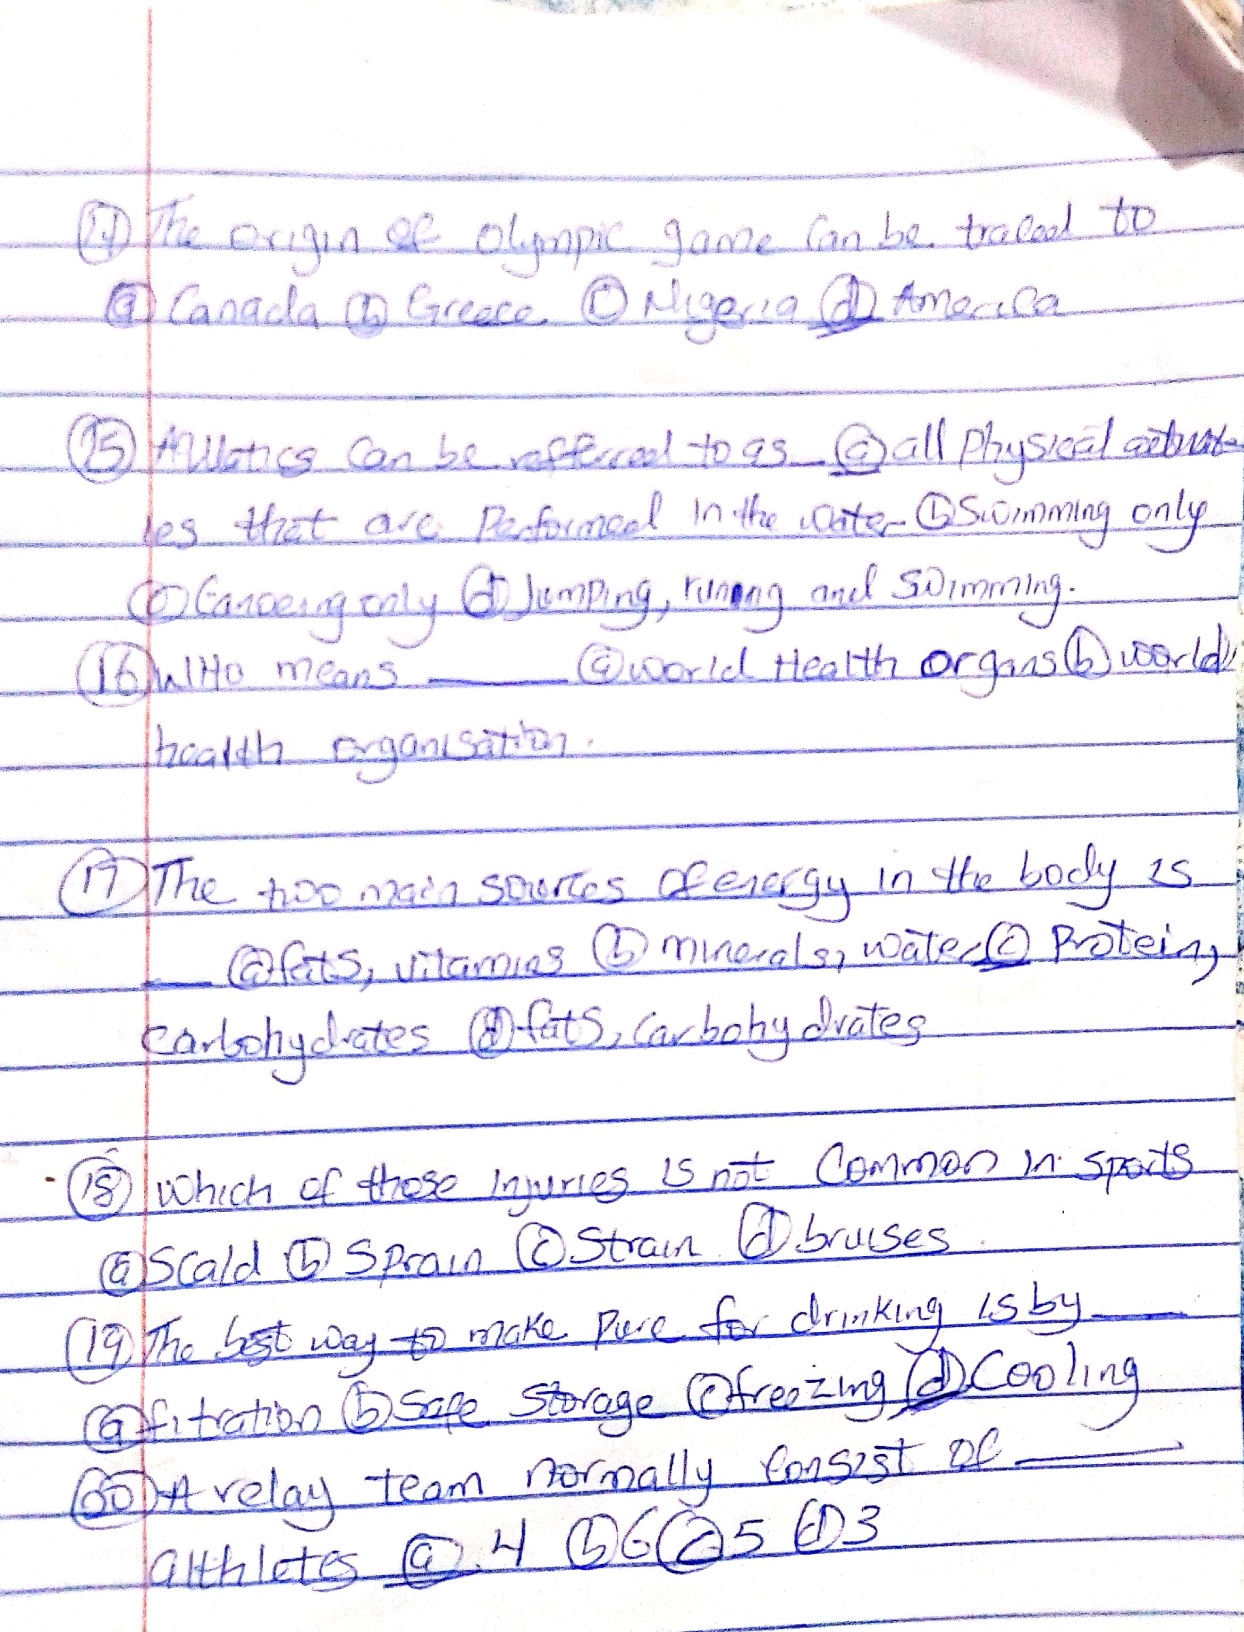 14 The origin of olympic game can be traced to
a Canada b Greece c Nigeria d America
15 can be referred to as a all Physical
ies that are Performed in the water b Swimming only
c Canoeing only d Jumping, runing and Swimming.
16 WHO means ____ a world Health organs b world
health organisation.
17 The two main sources of energy in the body is
__ a fats, vitamins b minerals, water c Protein,
carbohydrates d fats, carbohydrates
18 which of those injuries is not Common in sports
a Scald b Sprain c Strain d bruises
19 The best way to make Pure for drinking is by ___
a fitration b Safe Storage c freezing d Cooling
20 A relay team normally consist of ____
althletes a 4 b 6 c 5 d 3